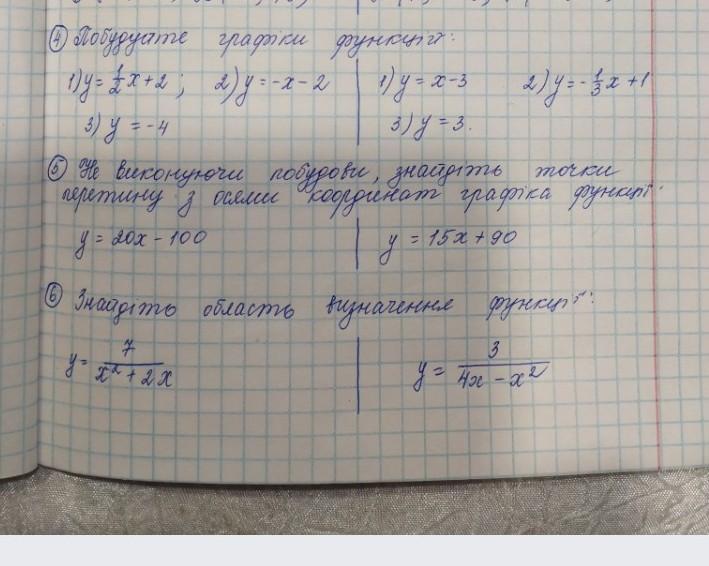 ④ Побудуйте графіки функцій:
1) y = 1/2 x + 2 ; 2) y = -x - 2 | 1) y = x - 3 2) y = -1/3 x + 1
3) y = -4 | 3) y = 3.
⑤ Не виконуючи побудови, знайдіть точки
перетину з осями координат графіка функції:
y = 20x - 100 | y = 15x + 90
⑥ Знайдіть область визначення функції:
y = 7/(x² + 2x) | y = 3/(4x - x²)